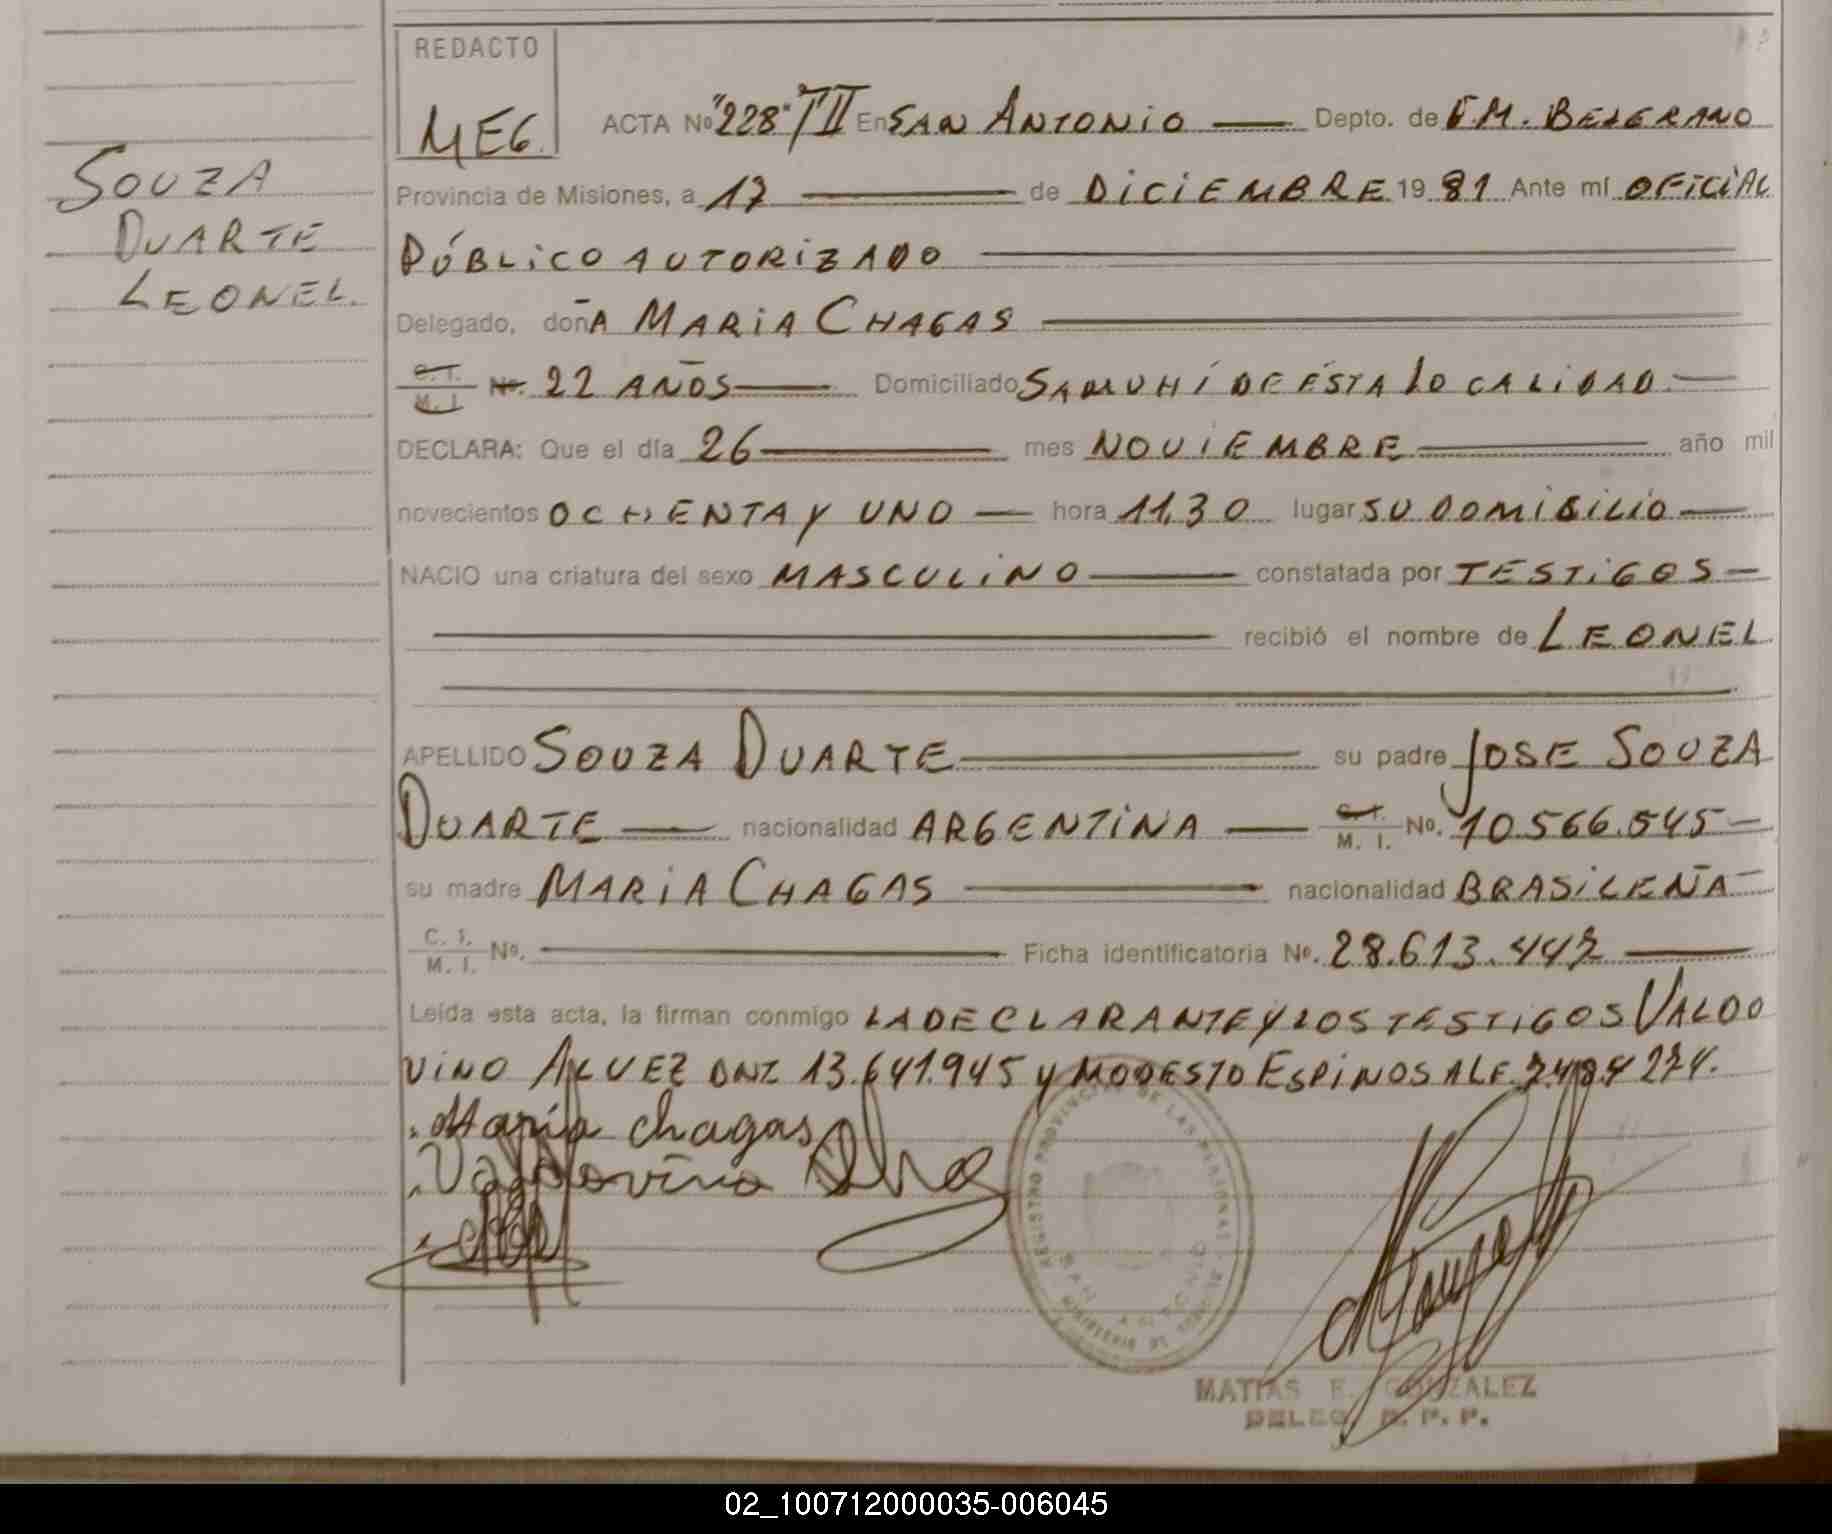 REDACTO
MEG.
ACTA Nº "228" T II En SAN ANTONIO Depto. de G.M. BELGRANO
SOUZA
DUARTE
LEONEL.
Provincia de Misiones, a 17 de DICIEMBRE 19 81 Ante mí OFICIAL
PÚBLICO AUTORIZADO
Delegado, doñA MARIA CHAGAS
C. I. M. I. Nº. 22 AÑOS Domiciliado SAMUHÍ DE ÉSTA LOCALIDAD
DECLARA: Que el día 26 mes NOVIEMBRE año mil
novecientos OCHENTA Y UNO hora 11,30 lugar SU DOMICILIO
NACIO una criatura del sexo MASCULINO constatada por TESTIGOS
recibió el nombre de LEONEL
APELLIDO SOUZA DUARTE su padre JOSE SOUZA
DUARTE nacionalidad ARGENTINA C. I. M. I. Nº. 10.566.545
su madre MARIA CHAGAS nacionalidad BRASILEÑA
C. I. M. I. Nº. Ficha identificatoria Nº. 28.613.447
Leída esta acta, la firman conmigo LA DECLARANTE Y LOS TESTIGOS VALDO
VINO ALVEZ DNI 13.641.945 y MODESTO ESPINOSA LE. 7.484 274.
María chagas
Valdovino
REGISTRO PROVINCIAL DE LAS PERSONAS
SAN ANTONIO
MISIONES
MATIAS E. GONZALEZ
DELEG. R. P. P.
02_100712000035-006045